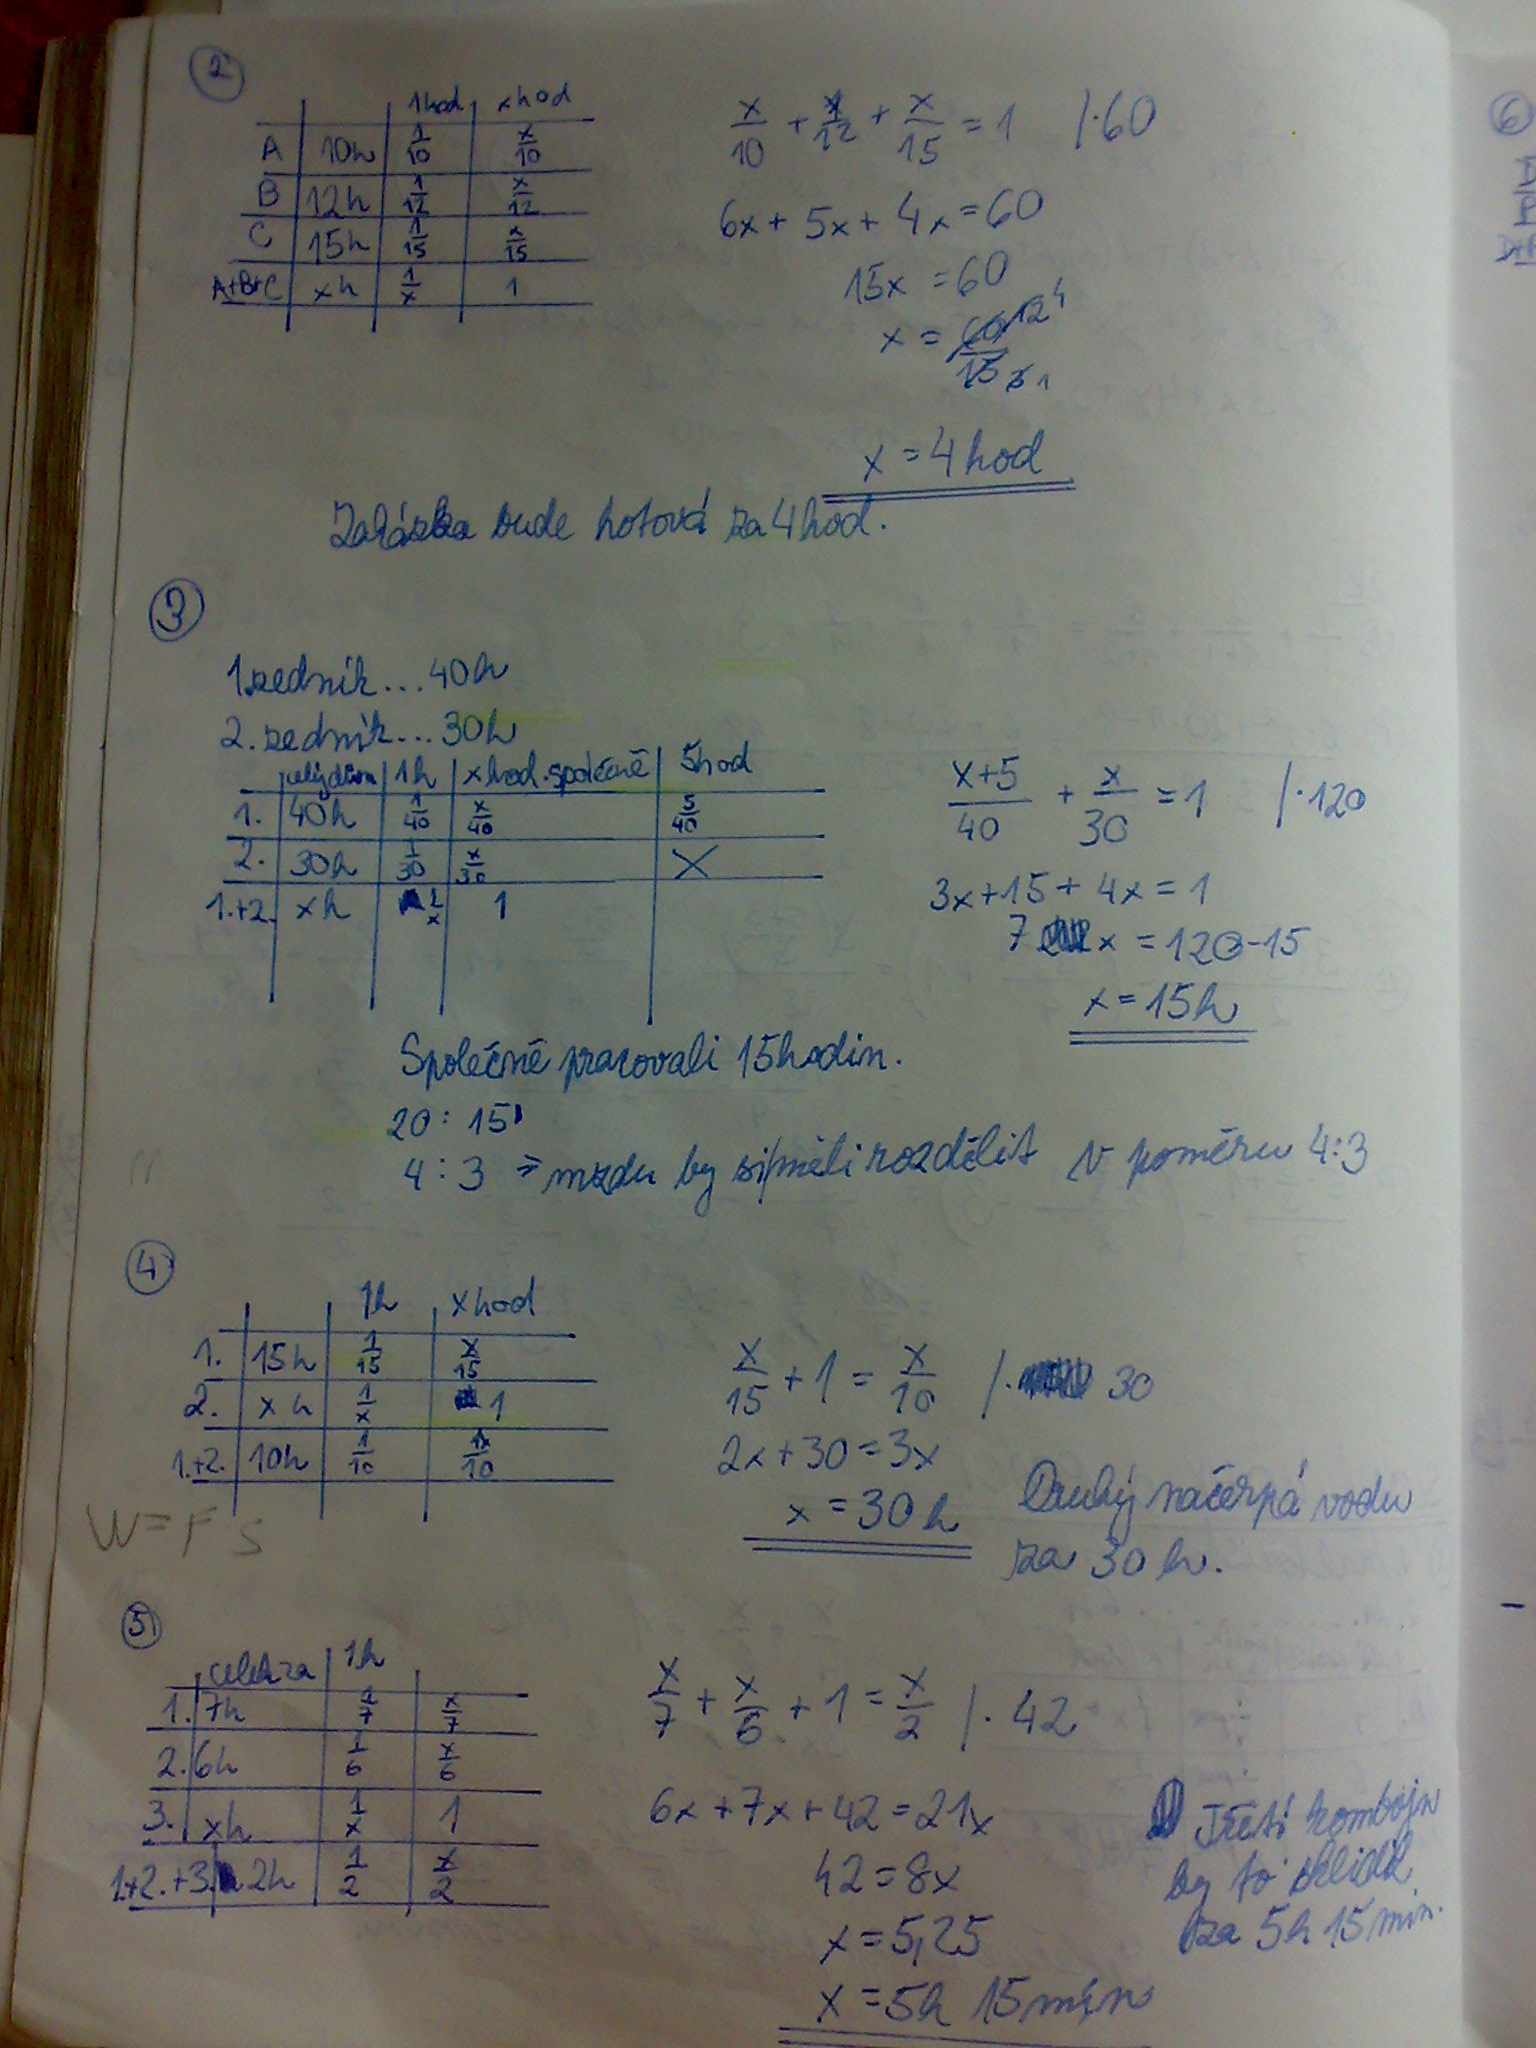 2
1hod xhod
A 10h 1/10 x/10
B 12h 1/12 x/12
C 15h 1/15 x/15
A+B+C xh 1/x 1
x/10 + x/12 + x/15 = 1 /·60
6x + 5x + 4x = 60
15x = 60
x = 60/15 12 4 3 1
x = 4hod
Zakázka bude hotová za 4hod.
3
1.zedník...40h
2.zedník...30h
celý dům 1h xhod.společně 5hod
1. 40h 1/40 x/40 5/40
2. 30h 1/30 x/30 X
1.+2. xh 1/x 1
x+5/40 + x/30 = 1 /·120
3x+15+4x=1
7x = 120-15
x = 15h
Společně pracovali 15hodin.
20 : 15
4 : 3 ⇒ mzdu by si měli rozdělit v poměru 4:3
4
1h xhod
1. 15h 1/15 x/15
2. xh 1/x 1
1.+2. 10h 1/10 1x/10
x/15 + 1 = x/10 /· 30
2x+30=3x
x = 30h
Druhý načerpá vodu
za 30h.
W = F S
5
celek za 1h
1. 7h 1/7 x/7
2. 6h 1/6 x/6
3. xh 1/x 1
1.+2.+3. 2h 1/2 x/2
x/7 + x/6 + 1 = x/2 /· 42
6x+7x+42=21x
42=8x
x=5,25
x=5h 15min
Třetí kombajn
by to sklidil
za 5h 15min.
6